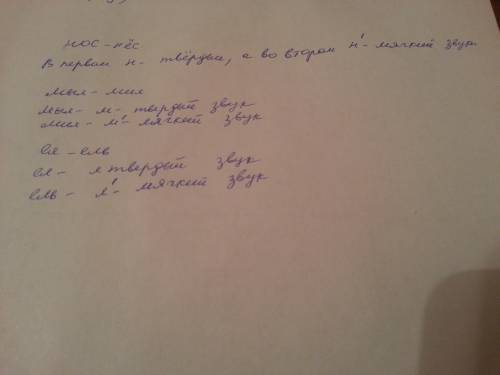 нос - нёс
В первом н - твёрдый, а во втором н' - мягкий звук
мыл - мил
мыл - м - твердый звук
мил - м' - мягкий звук
ел - ель
ел - л твердый звук
ель - л' - мягкий звук